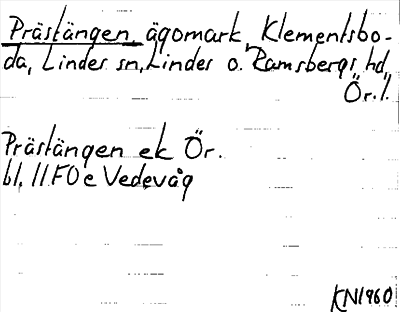 Prästängen, ägomark, Klementsbo-
da, Lindes sn, Lindes o. Ramsbergs hd,
Ör. l.
Prästängen ek Ör.
bl. 11F0e Vedevåg
KN1960